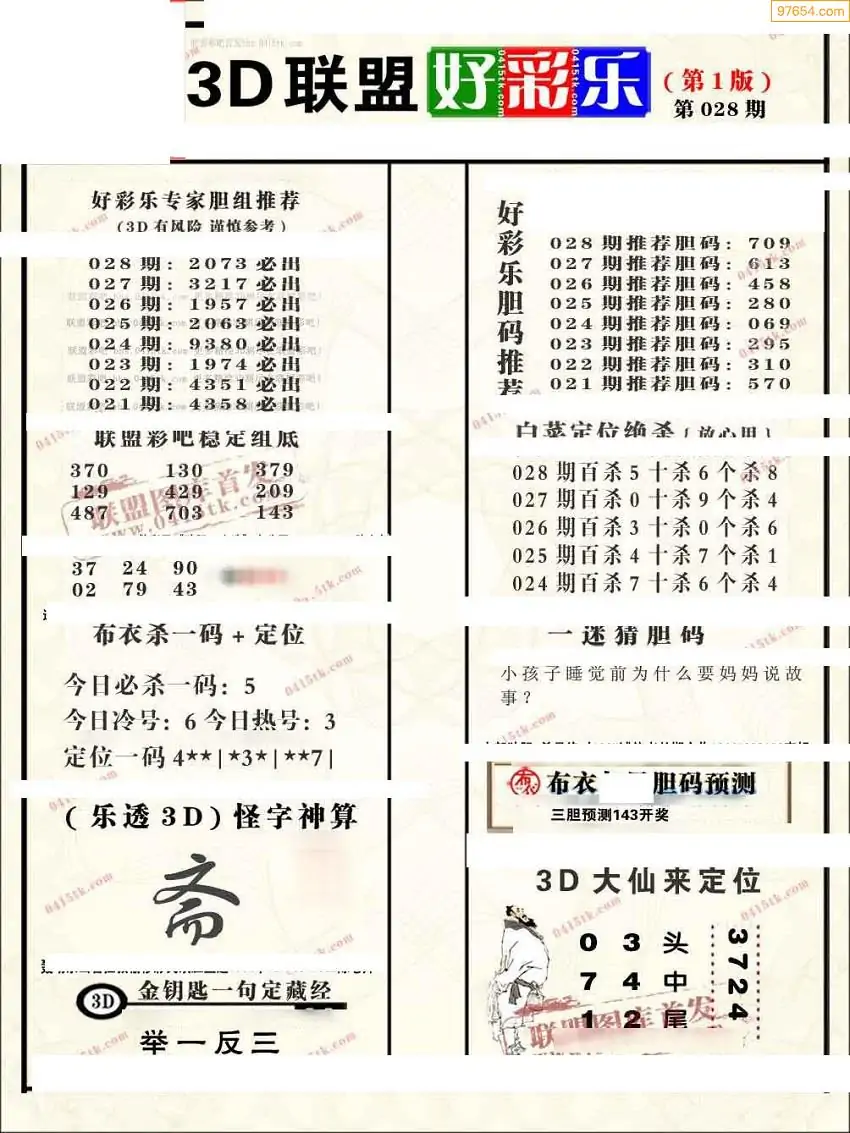 97654.com
3D联盟好彩乐
(第1版)
第028期
好彩乐专家胆组推荐
(3D有风险 谨慎参考)
028期: 2073必出
027期: 3217必出
026期: 1957必出
025期: 2063必出
024期: 9380必出
023期: 1974必出
022期: 4351必出
021期: 4358必出
联盟彩吧稳定组底
370 130 379
129 429 209
487 703 143
37 24 90
02 79 43
布衣杀一码+定位
今日必杀一码: 5
今日冷号: 6 今日热号: 3
定位一码 4**|*3*|**7|
(乐透3D)怪字神算
斋
3D 金钥匙一句定藏经
举一反三
好彩乐胆码推荐
028期推荐胆码: 709
027期推荐胆码: 613
026期推荐胆码: 458
025期推荐胆码: 280
024期推荐胆码: 069
023期推荐胆码: 295
022期推荐胆码: 310
021期推荐胆码: 570
白菜定位绝杀[放心用]
028期百杀5十杀6个杀8
027期百杀0十杀9个杀4
026期百杀3十杀0个杀6
025期百杀4十杀7个杀1
024期百杀7十杀6个杀4
一迷猜胆码
小孩子睡觉前为什么要妈妈说故
事?
布衣 胆码预测
三胆预测143开奖
3D大仙来定位
0 3 头
7 4 中
1 2 尾
3724
联盟图库首发
www.0415tk.com
0415tk.com